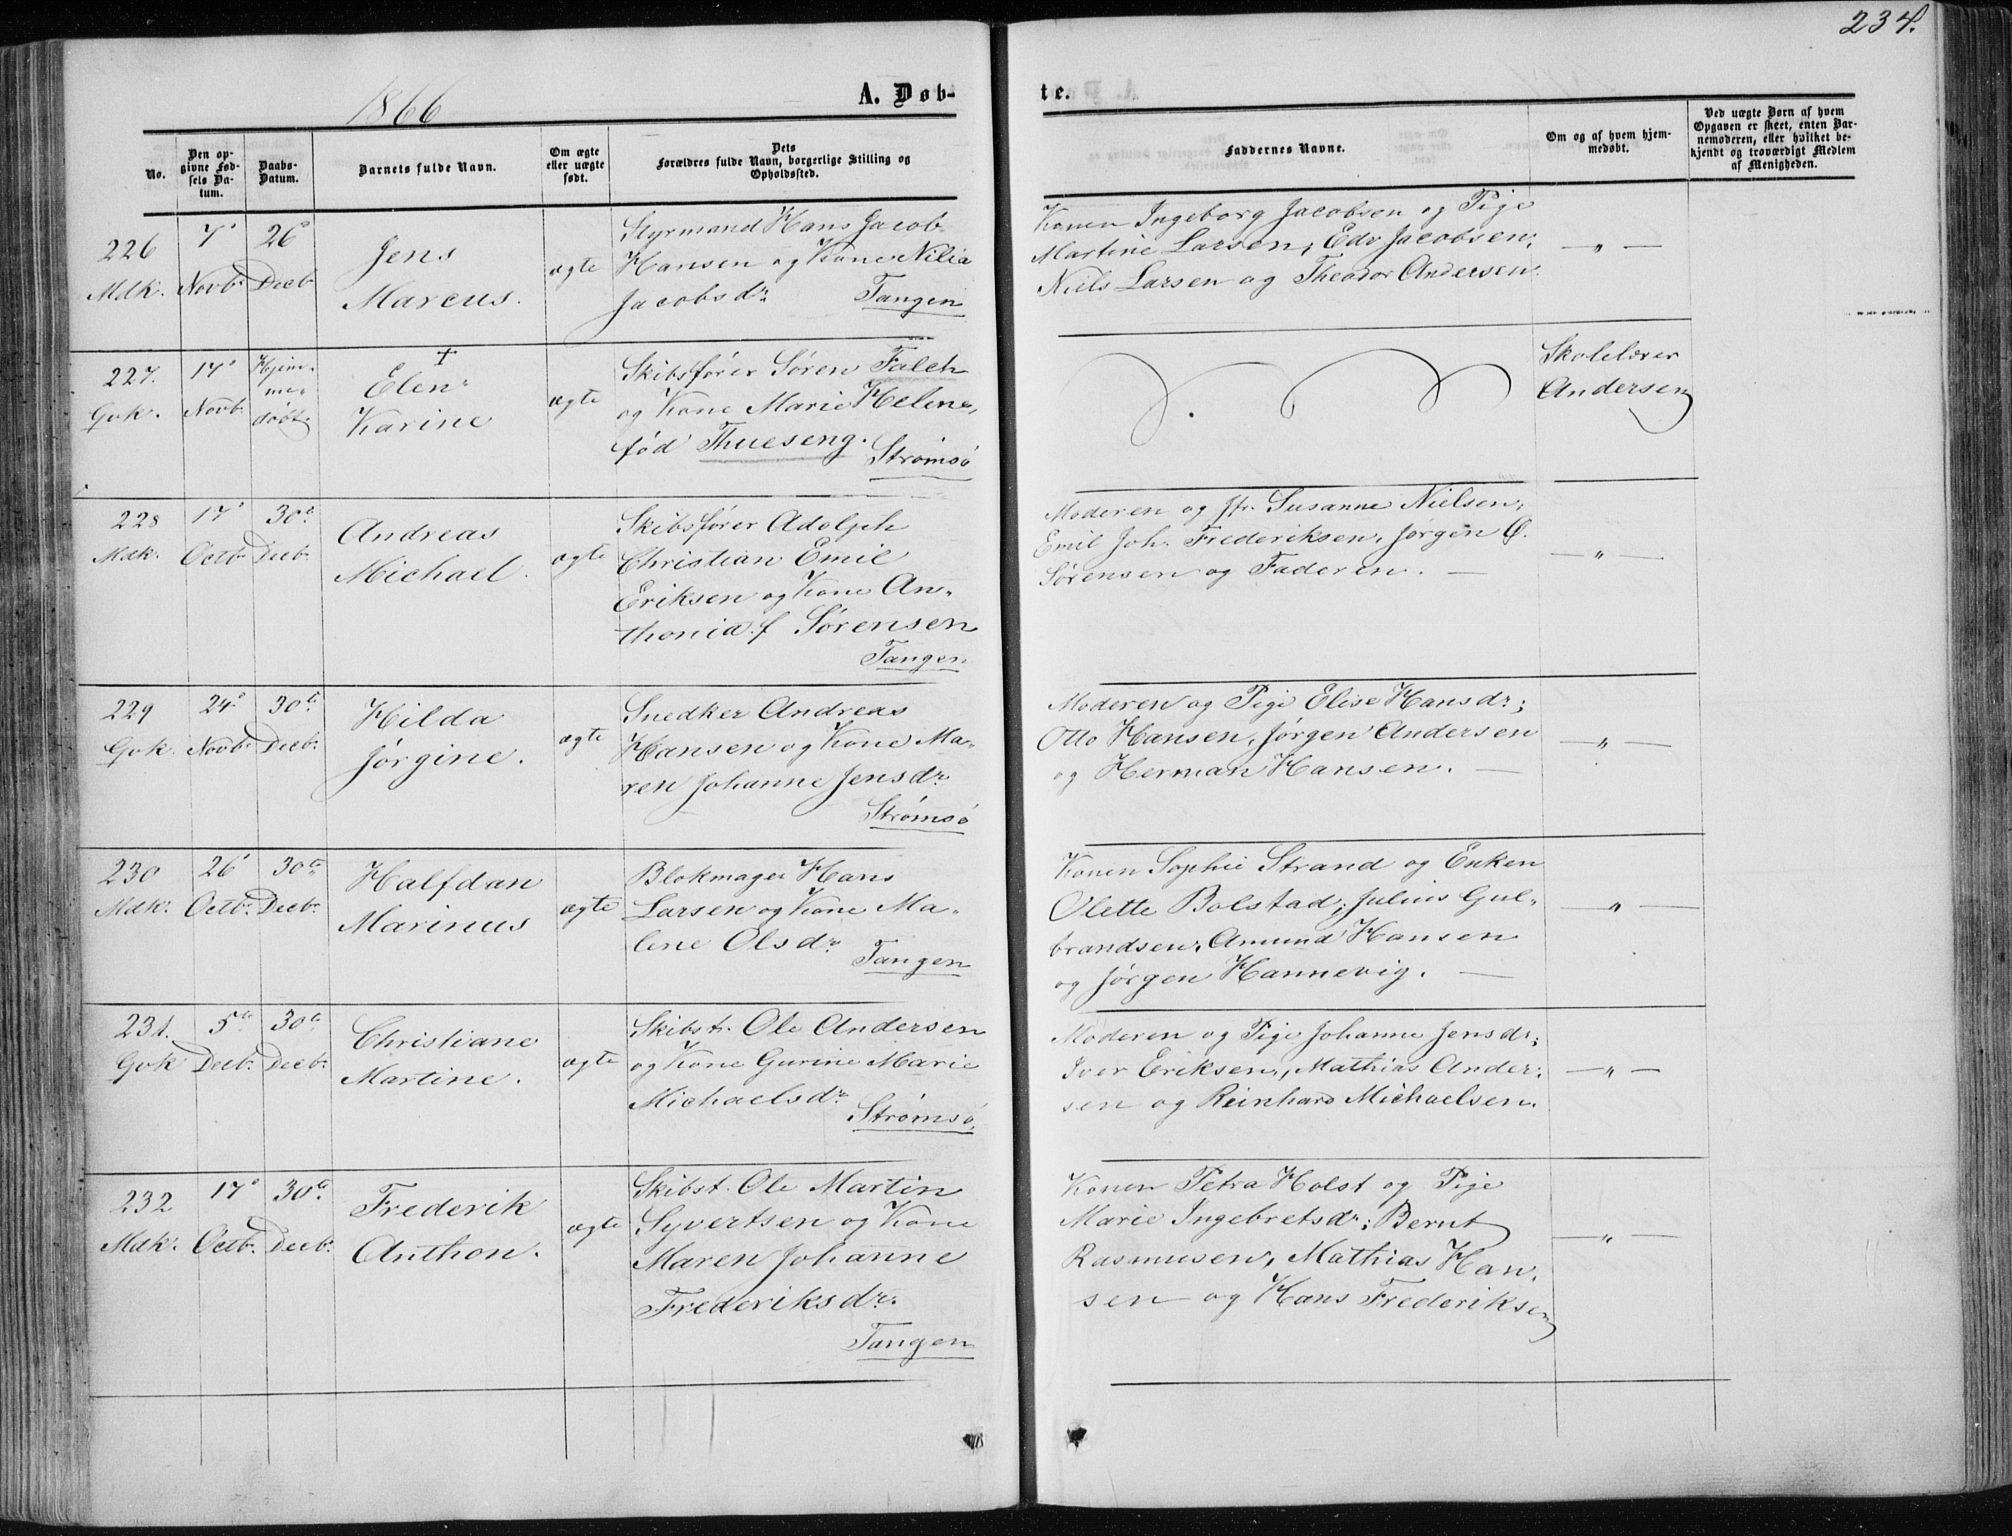 234.
1866
A. Døb-
te.
No.
Den op-
givne Fød-
sels Da-
tum.
Daabs-
Datum.
Barnets fulde Navn.
Om ægte
eller uægte
født.
Dets
Forældres fulde Navn, borgerlige Stilling og
Opholdssted.
Faddernes Navne.
Om og af hvem hjem-
medøbt.
Ved uægte Børn af hvem
Opgaven er skeet, enten Bar-
nemoderen, eller hvilket be-
kjendt og troværdigt Medlem
af Menigheden.
226
Mdk.
7de
Novbr
26de
Decbr
Jens
Marcus.
ægte
Styrmand Hans Jacob
Hansen og Kone Nilia
Jacobsdr
Tangen
Konen Ingeborg Jacobsen og Pige
Martine Larsen; Edv Jacobsen,
Niels Larsen og Theodor Andersen.
— " —
227.
Gvk.
17de
Novbr
Hjem-
me-
døbt
+
Elen
Karine
ægte
Skibsfører Søren Falch
og Kone Marie Helene,
fød Thueseng.
Strømsø
Skolelærer
Andersen
228
Mdk.
17de
Octbr
30te
Decbr
Andreas
Michael.
ægte
Skibsfører Adolph
Christian Emil
Eriksen og Kone An-
thonia f Sørensen
Tangen
Moderen og Jfr. Susanne Nielsen;
Emil Joh. Frederiksen, Jørgen Ø.
Sørensen og Faderen. —
— " —
229
Gvk
24de
Novbr
30te
Decbr
Hilda
Jørgine.
ægte
Snedker Andreas
Hansen og Kone Ma-
ren Johanne Jensdr
Strømsø
Moderen og Pige Elise Hansdr;
Otto Hansen, Jørgen Andersen
og Herman Hansen. —
— " —
230
Mdk.
26de
Octbr
30te
Decbr
Halfdan
Marinus
ægte
Blokmager Hans
Larsen og Kone Ma-
lene Olsdr
Tangen
Konen Sophie Strand og Enken
Olette Bolstad; Julius Gul-
brandsen, Amund Hansen
og Jørgen Hannevig. —
— " —
231.
Gvk
5te
Decbr
30te
Decbr
Christiane
Martine.
ægte
Skibst. Ole Andersen
og Kone Gurine Marie
Michaelsdr
Strømsø.
Moderen og Pige Johanne Jensdr;
Iver Eriksen, Mathias Ander-
sen og Reinhard Michaelsen.
— " —
232
Mdk.
17de
Octbr
30te
Decbr
Frederik
Anthon.
ægte
Skibst. Ole Martin
Syvertsen og Kone
Maren Johanne
Frederiksdr.
Tangen
Konen Petra Holst og Pige
Marie Ingebretsdr; Bernt
Rasmusen, Mathias Han-
sen og Hans Frederiksen
— " —